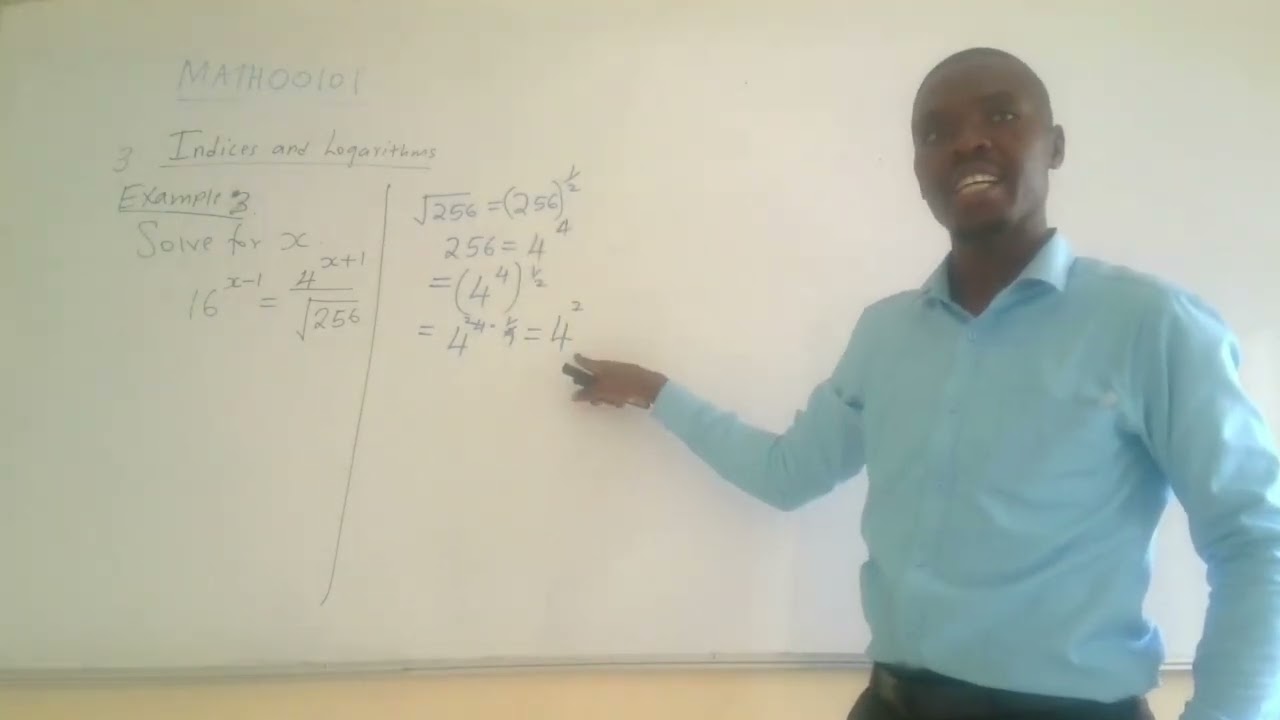 MATH00101
3 Indices and Logarithms
Example 3.
Solve for x.
16^{x-1} = \frac{4^{x+1}}{\sqrt{256}}
√256 = (256)^{1/2}
256 = 4^4
= (4^4)^{1/2}
= 4^{4 · 1/2} = 4^2